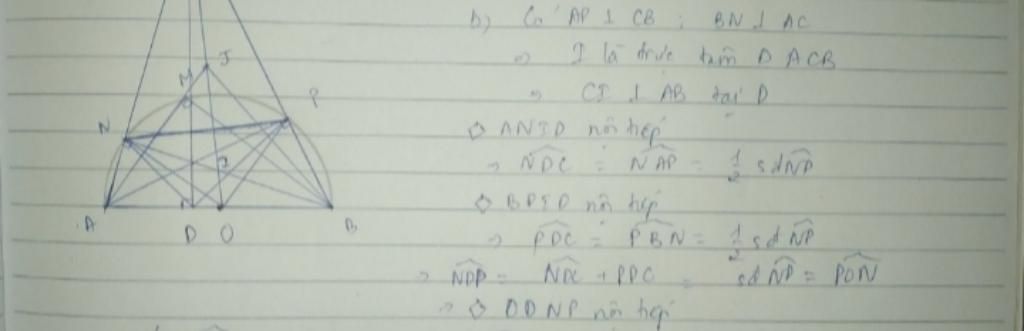 b) Có AP ⊥ CB ; BN ⊥ AC
⇒ I là trực tâm Δ ACB
⇒ CI ⊥ AB tại D
◇ ANID nội tiếp
⇒ \widehat{NDC} = \widehat{NAP} = \frac{1}{2} sđ\widehat{NP}
◇ BPID nội tiếp
⇒ \widehat{PDC} = \widehat{PBN} = \frac{1}{2} sđ\widehat{NP}
⇒ \widehat{NDP} = \widehat{NDC} + PDC = sđ\widehat{NP} = \widehat{PON}
⇒ ◇ ODNP nội tiếp
J
M
P
N
I
A
D
O
B